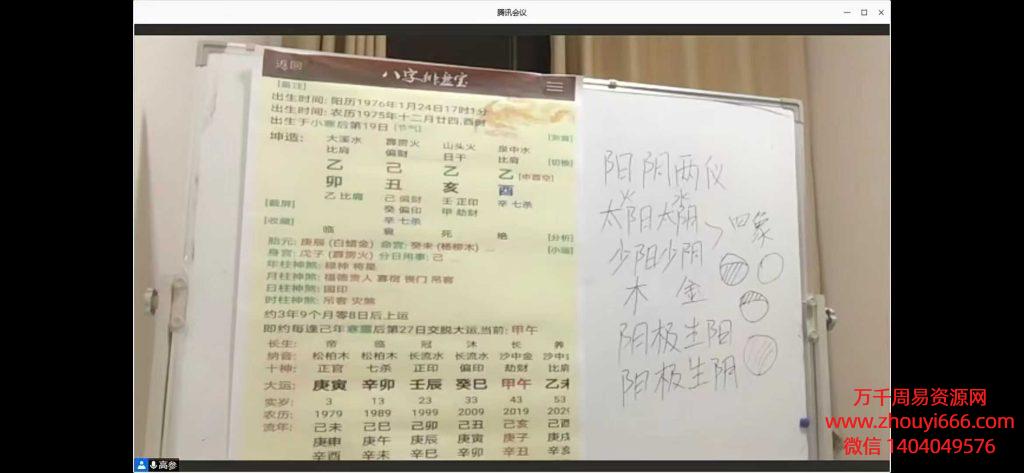 腾讯会议
返回
八字排盘宝
[备注]
出生时间: 阳历1976年1月24日17时1分
出生时间: 农历1975年十二月廿四,酉时
出生于小寒后第19日 [节气]
坤造: 大溪水 霹雳火 山头火 泉中水
比肩 偏财 日干 比肩
乙 己 乙 乙 [申酉空]
卯 丑 亥 酉
乙 比肩 己 偏财 壬 正印 辛 七杀
癸 偏印 甲 劫财
辛 七杀
[截屏]
[收藏]
临 衰 死 绝 [分析]
胎元: 庚辰 (白蜡金) 命宫: 癸未 (杨柳木)
身宫: 戊子 (霹雳火) 分日用事: 己
年柱神煞: 禄神 将星
月柱神煞: 福德贵人 寡宿 丧门 吊客
日柱神煞: 国印
时柱神煞: 吊客 灾煞
约3年9个月零8日后上运
即约每逢己年寒露后第27日交脱大运,当前: 甲午
长生: 帝 临 冠 沐 长 养
纳音: 松柏木 松柏木 长流水 长流水 沙中金 沙中金
十神: 正官 七杀 正印 偏印 劫财 比肩
大运: 庚寅 辛卯 壬辰 癸巳 甲午 乙未
实岁: 3 13 23 33 43 53
农历: 1979 1989 1999 2009 2019 202
流年: 己未 己巳 己卯 己丑 己亥 己酉
庚申 庚午 庚辰 庚寅 庚子 庚戌
辛酉 辛未 辛巳 辛卯 辛丑 辛亥
阳 阴 两仪
太阳 太阴
少阳 少阴
四象
木 金
阳极生阳
阳极生阴
高参
万千周易资源网
www.zhouyi666.com
微信 1404049576